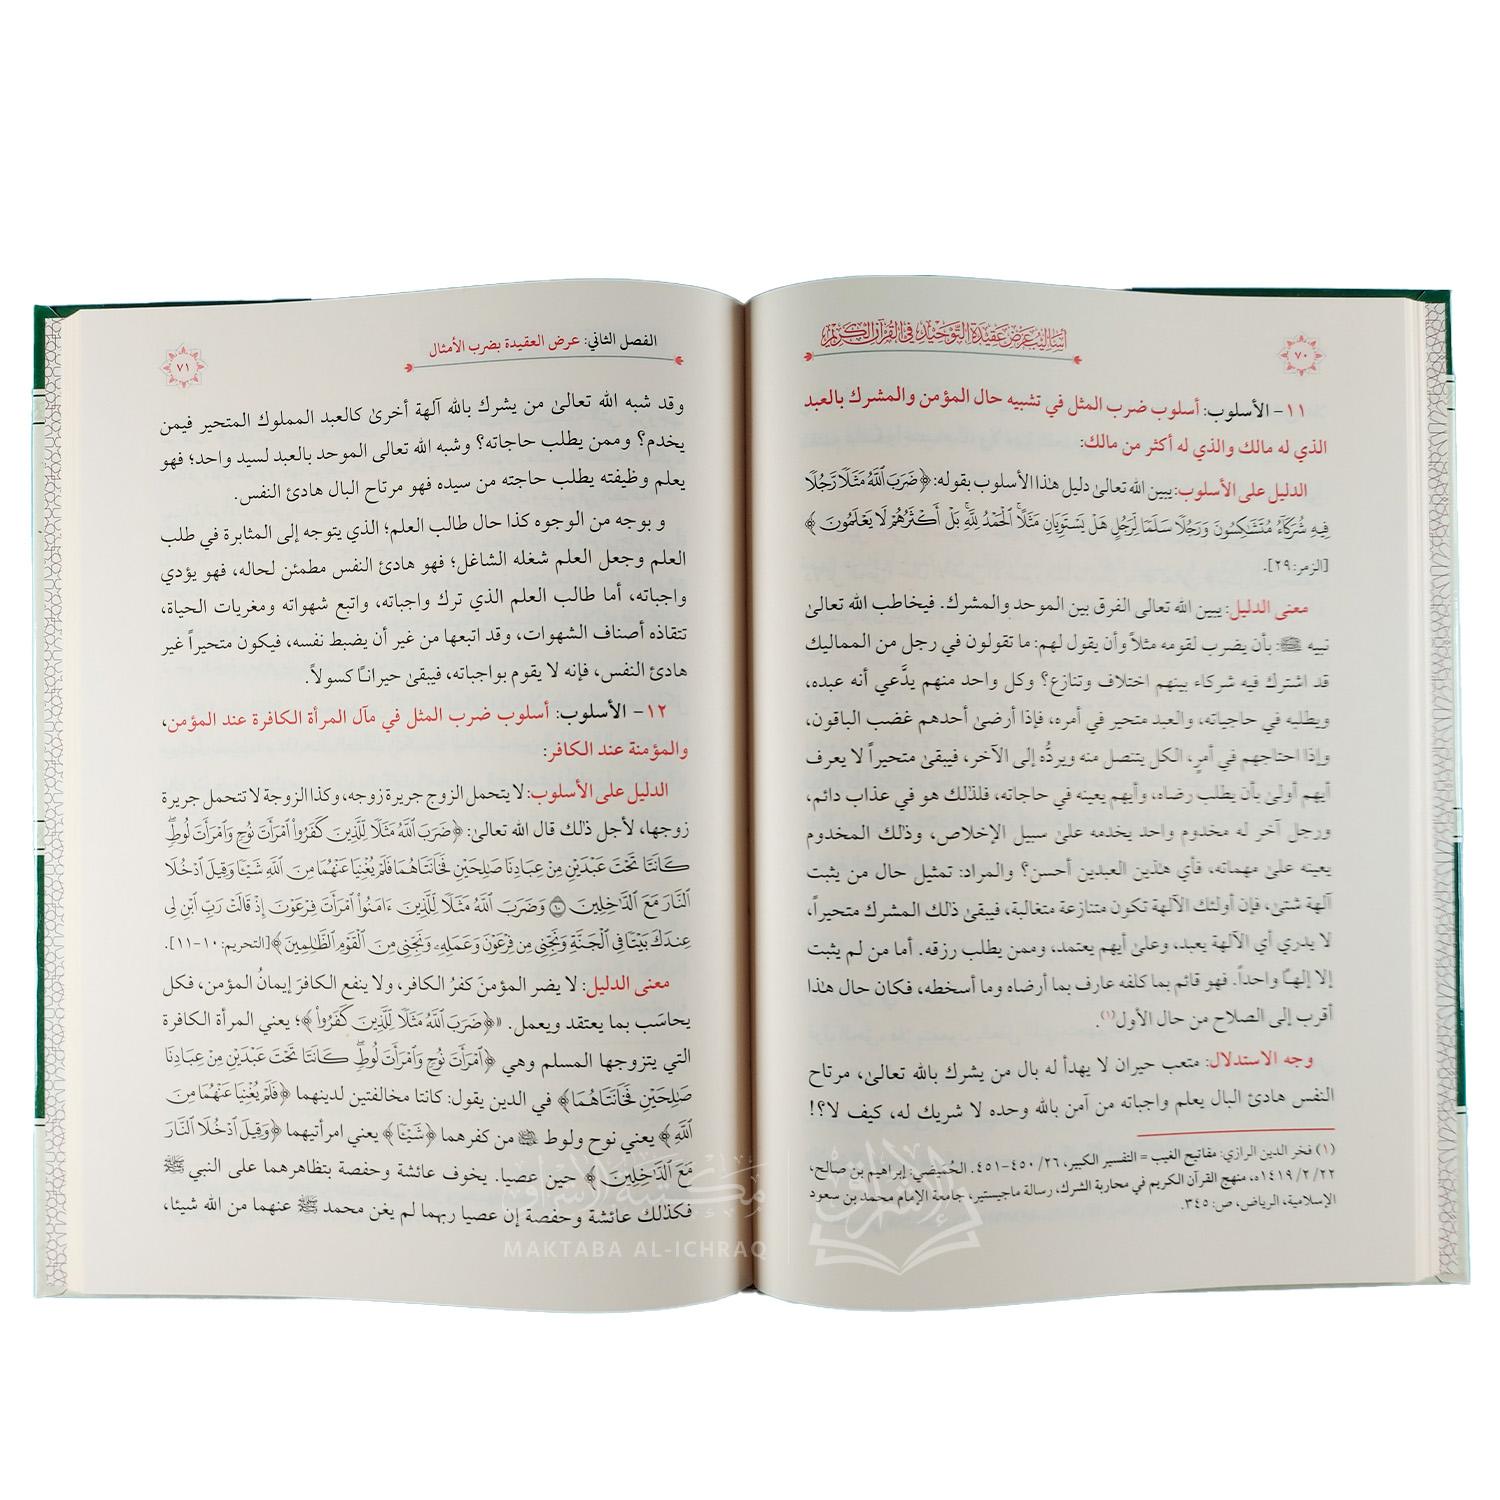 ٧٠
أساليب عرض عقيدة التوحيد في القرآن الكريم
١١- الأسلوب: أسلوب ضرب المثل في تشبيه حال المؤمن والمشرك بالعبد
الذي له مالك والذي له أكثر من مالك:
الدليل على الأسلوب: يبين الله تعالىٰ دليل هذا الأسلوب بقوله: ﴿ضَرَبَ ٱللَّهُ مَثَلًا رَّجُلًا
فِيهِ شُرَكَآءُ مُتَشَٰكِسُونَ وَرَجُلًا سَلَمًا لِّرَجُلٍ هَلْ يَسْتَوِيَانِ مَثَلًا ۚ ٱلْحَمْدُ لِلَّهِ ۚ بَلْ أَكْثَرُهُمْ لَا يَعْلَمُونَ﴾
[الزمر: ٢٩].
معنى الدليل: يبين الله تعالى الفرق بين الموحد والمشرك. فيخاطب الله تعالىٰ
نبيه ﷺ: بأن يضرب لقومه مثلاً وأن يقول لهم: ما تقولون في رجل من المماليك
قد اشترك فيه شركاء بينهم اختلاف وتنازع؟ وكل واحد منهم يدَّعي أنه عبده،
ويطلبه في حاجياته، والعبد متحير في أمره، فإذا أرضىٰ أحدهم غضب الباقون،
وإذا احتاجهم في أمرٍ، الكل يتنصل منه ويردُّه إلى الآخر، فيبقىٰ متحيراً لا يعرف
أيهم أولىٰ بأن يطلب رضاه، وأيهم يعينه في حاجاته، فلذٰلك هو في عذاب دائم،
ورجل آخر له مخدوم واحد يخدمه علىٰ سبيل الإخلاص، وذلك المخدوم
يعينه علىٰ مهماته، فأي هٰذين العبدين أحسن؟ والمراد: تمثيل حال من يثبت
آلهة شتىٰ، فإن أولئك الآلهة تكون متنازعة متغالبة، فيبقىٰ ذلك المشرك متحيراً،
لا يدري أي الآلهة يعبد، وعلىٰ أيهم يعتمد، وممن يطلب رزقه. أما من لم يثبت
إلا إلهـًا واحداً. فهو قائم بما كلفه عارف بما أرضاه وما أسخطه، فكان حال هٰذا
أقرب إلى الصلاح من حال الأول(١).
وجه الاستدلال: متعب حيران لا يهدأ له بال من يشرك بالله تعالىٰ، مرتاح
النفس هادئ البال يعلم واجباته من آمن بالله وحده لا شريك له، كيف لا؟!
(١) فخر الدين الرازي: مفاتيح الغيب = التفسير الكبير، ٤٥٠/٢٦-٤٥١. الحُميضي: إبراهيم بن صالح،
١٤١٩/٢/٢٢ه، منهج القرآن الكريم في محاربة الشرك، رسالة ماجيستير، جامعة الإمام محمد بن سعود
الإسلامية، الرياض، ص: ٣٤٥.
الفصل الثاني: عرض العقيدة بضرب الأمثال
٧١
وقد شبه الله تعالىٰ من يشرك بالله آلهة أخرىٰ كالعبد المملوك المتحير فيمن
يخدم؟ وممن يطلب حاجاته؟ وشبه الله تعالى الموحد بالعبد لسيد واحد؛ فهو
يعلم وظيفته يطلب حاجته من سيده فهو مرتاح البال هادئ النفس.
و بوجه من الوجوه كذا حال طالب العلم؛ الذي يتوجه إلى المثابرة في طلب
العلم وجعل العلم شغله الشاغل؛ فهو هادئ النفس مطمئن لحاله، فهو يؤدي
واجباته، أما طالب العلم الذي ترك واجباته، واتبع شهواته ومغريات الحياة،
تتقاذه أصناف الشهوات، وقد اتبعها من غير أن يضبط نفسه، فيكون متحيراً غير
هادئ النفس، فإنه لا يقوم بواجباته، فيبقىٰ حيرانـًا كسولاً.
١٢- الأسلوب: أسلوب ضرب المثل في مآل المرأة الكافرة عند المؤمن،
والمؤمنة عند الكافر:
الدليل على الأسلوب: لا يتحمل الزوج جريرة زوجه، وكذا الزوجة لا تتحمل جريرة
زوجها، لأجل ذلك قال الله تعالىٰ: ﴿ضَرَبَ ٱللَّهُ مَثَلًا لِّلَّذِينَ كَفَرُوا۟ ٱمْرَأَتَ نُوحٍ وَٱمْرَأَتَ لُوطٍ ۖ
كَانَتَا تَحْتَ عَبْدَيْنِ مِنْ عِبَادِنَا صَٰلِحَيْنِ فَخَانَتَاهُمَا فَلَمْ يُغْنِيَا عَنْهُمَا مِنَ ٱللَّهِ شَيْـًٔا وَقِيلَ ٱدْخُلَا
ٱلنَّارَ مَعَ ٱلدَّٰخِلِينَ ١٠ وَضَرَبَ ٱللَّهُ مَثَلًا لِّلَّذِينَ ءَامَنُوا۟ ٱمْرَأَتَ فِرْعَوْنَ إِذْ قَالَتْ رَبِّ ٱبْنِ لِى
عِندَكَ بَيْتًا فِى ٱلْجَنَّةِ وَنَجِّنِى مِن فِرْعَوْنَ وَعَمَلِهِۦ وَنَجِّنِى مِنَ ٱلْقَوْمِ ٱلظَّٰلِمِينَ﴾ [التحريم: ١٠-١١].
معنى الدليل: لا يضر المؤمنَ كفرُ الكافر، ولا ينفع الكافرَ إيمانُ المؤمن، فكل
يحاسَب بما يعتقد ويعمل. "﴿ضَرَبَ ٱللَّهُ مَثَلًا لِّلَّذِينَ كَفَرُوا۟﴾؛ يعني المرأة الكافرة
التي يتزوجها المسلم وهي ﴿ٱمْرَأَتَ نُوحٍ وَٱمْرَأَتَ لُوطٍ ۖ كَانَتَا تَحْتَ عَبْدَيْنِ مِنْ عِبَادِنَا
صَٰلِحَيْنِ فَخَانَتَاهُمَا﴾ في الدين يقول: كانتا مخالفتين لدينهما ﴿فَلَمْ يُغْنِيَا عَنْهُمَا مِنَ
ٱللَّهِ﴾ يعني نوح ولوط ﷺ من كفرهما ﴿شَيْـًٔا﴾ يعني امرأتيهما ﴿وَقِيلَ ٱدْخُلَا ٱلنَّارَ
مَعَ ٱلدَّٰخِلِينَ﴾ حين عصيا. يخوف عائشة وحفصة بتظاهرهما على النبي ﷺ
فكذلك عائشة وحفصة إن عصيا ربهما لم يغن محمد ﷺ عنهما من الله شيئا،
مكتبة الإشراق
MAKTABA AL-ICHRAQ
الإشراق